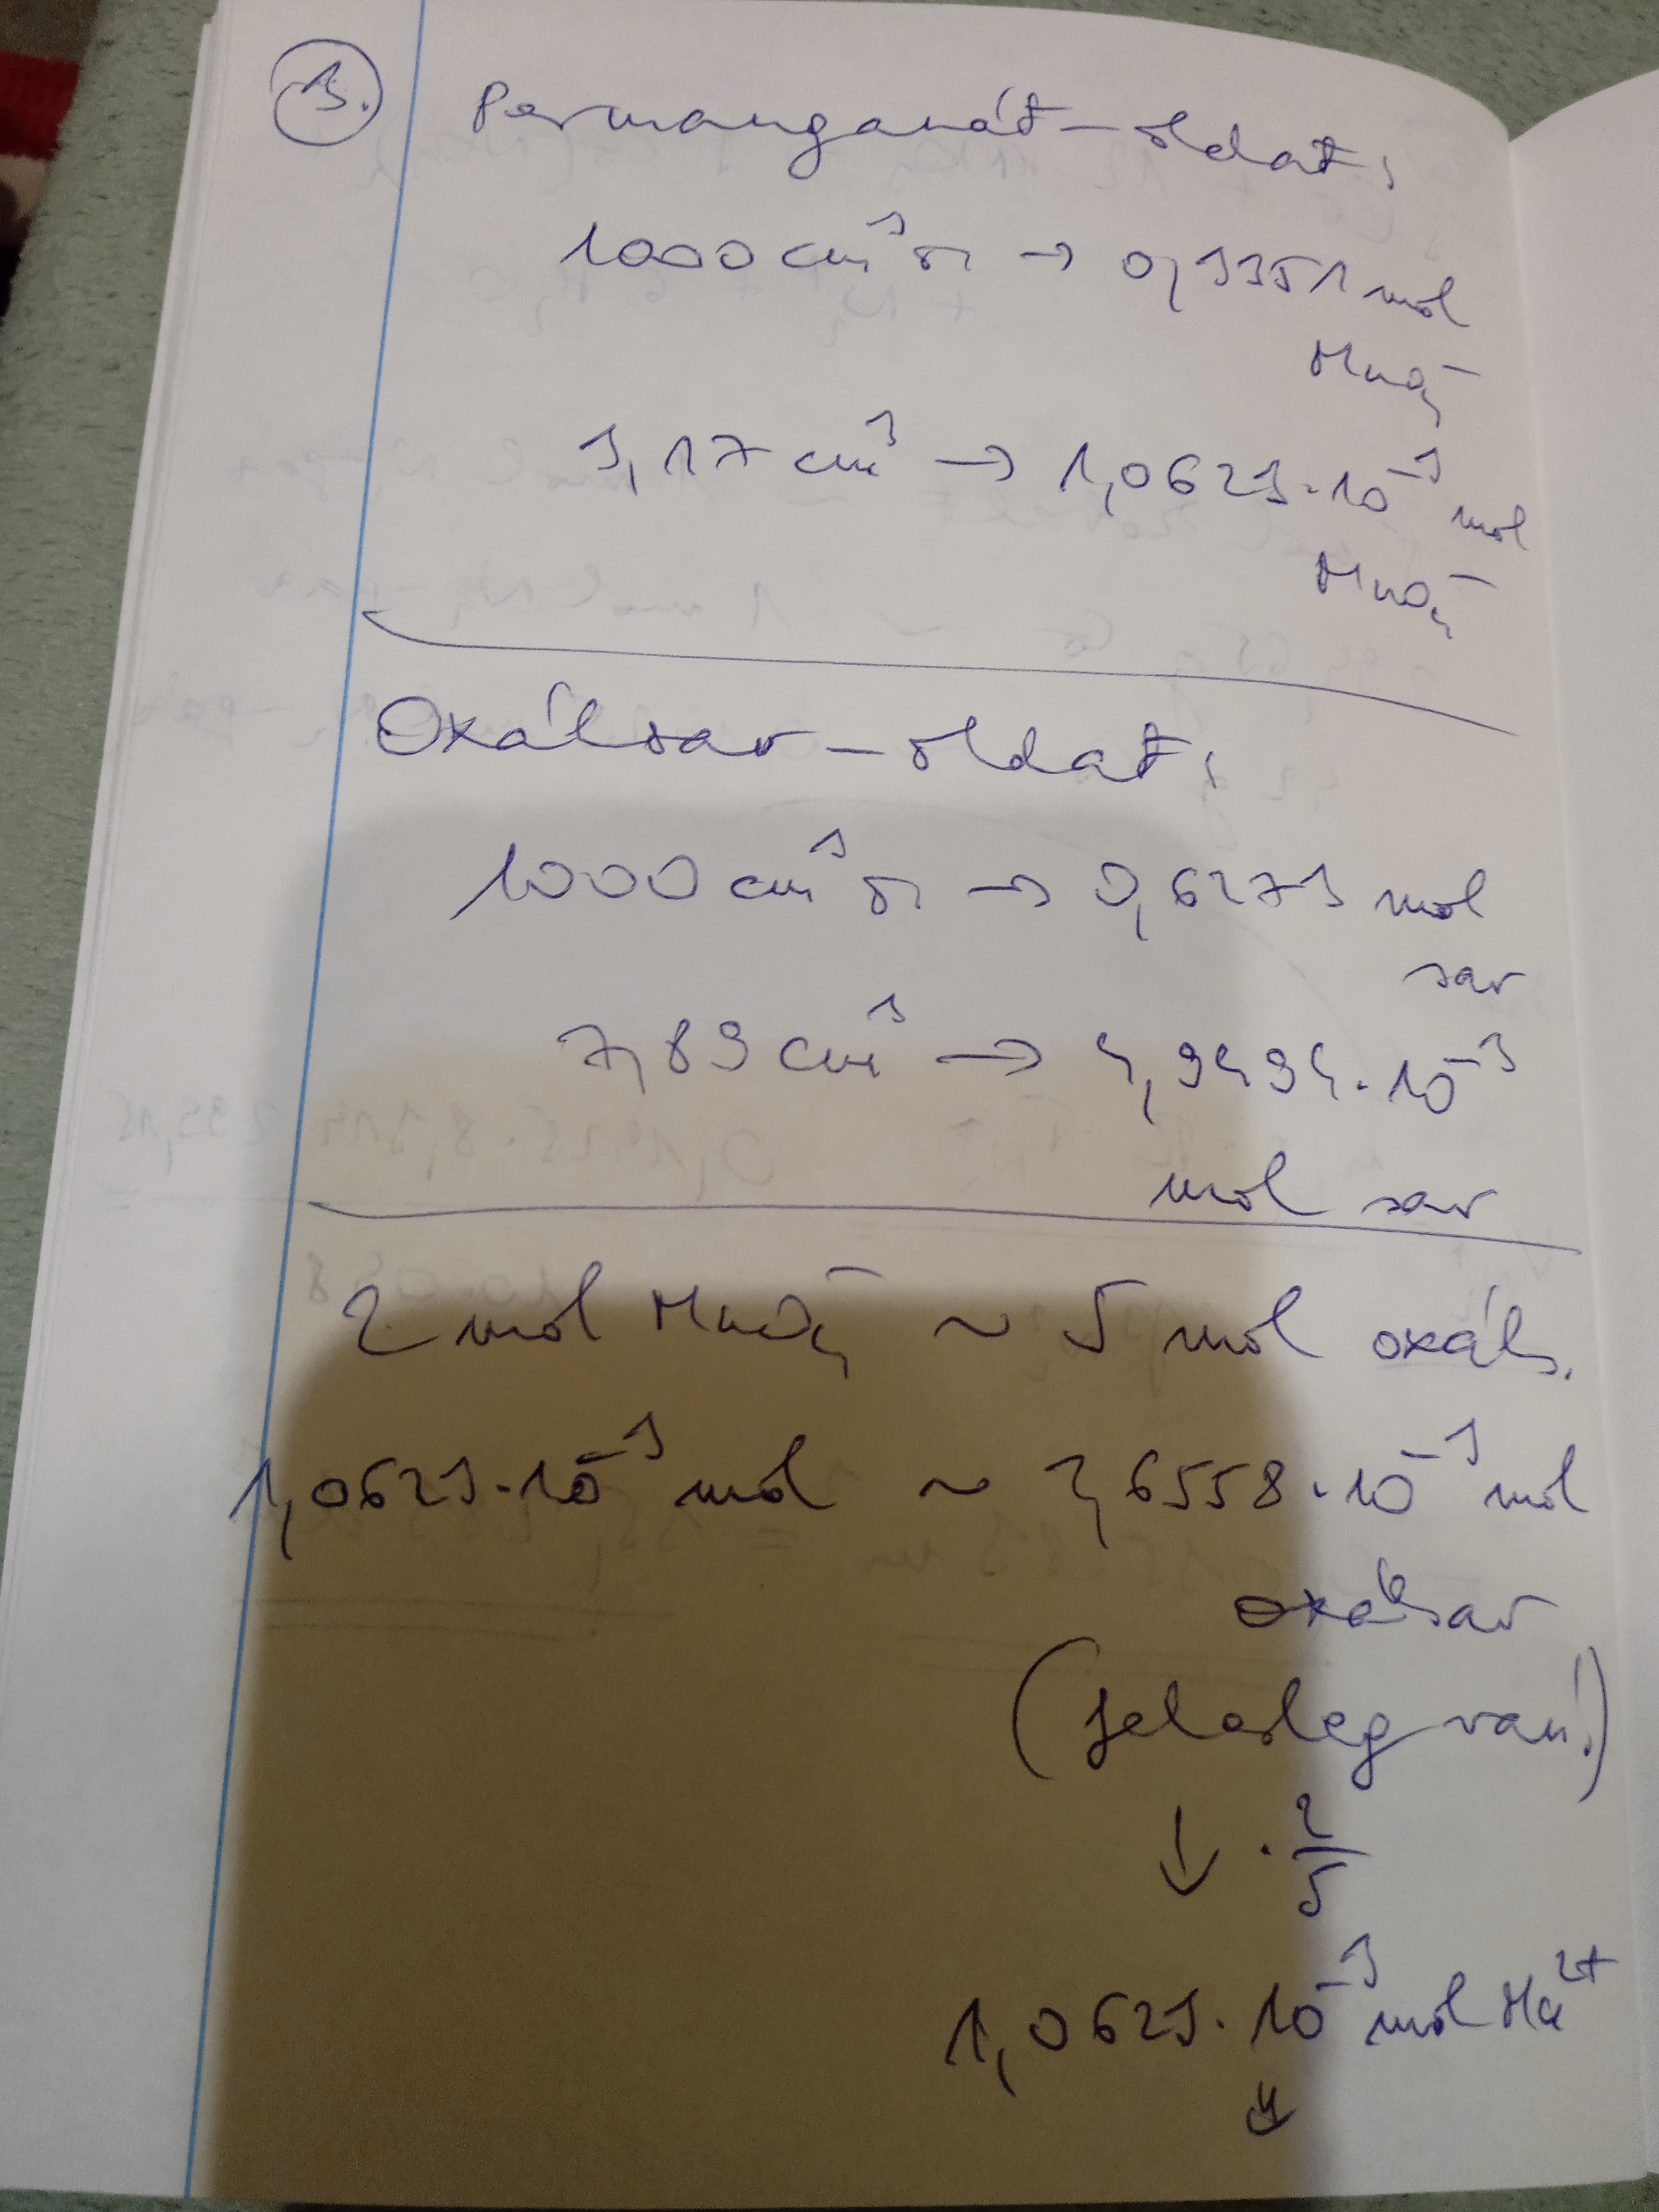 3.
Permanganát-oldat:
1000 cm³ o. → 0,3351 mol
MnO₄⁻
3,17 cm³ → 1,0623·10⁻³ mol
MnO₄⁻
Oxálsav-oldat:
1000 cm³ o. → 0,6273 mol
sav
7,89 cm³ → 4,9494·10⁻³
mol sav
2 mol MnO₄⁻ ~ 5 mol oxáls.
1,0623·10⁻³ mol ~ 2,6558·10⁻³ mol
oxálsav
(felesleg van!)
↓ · 2/5
1,0623·10⁻³ mol Mn²⁺
↓